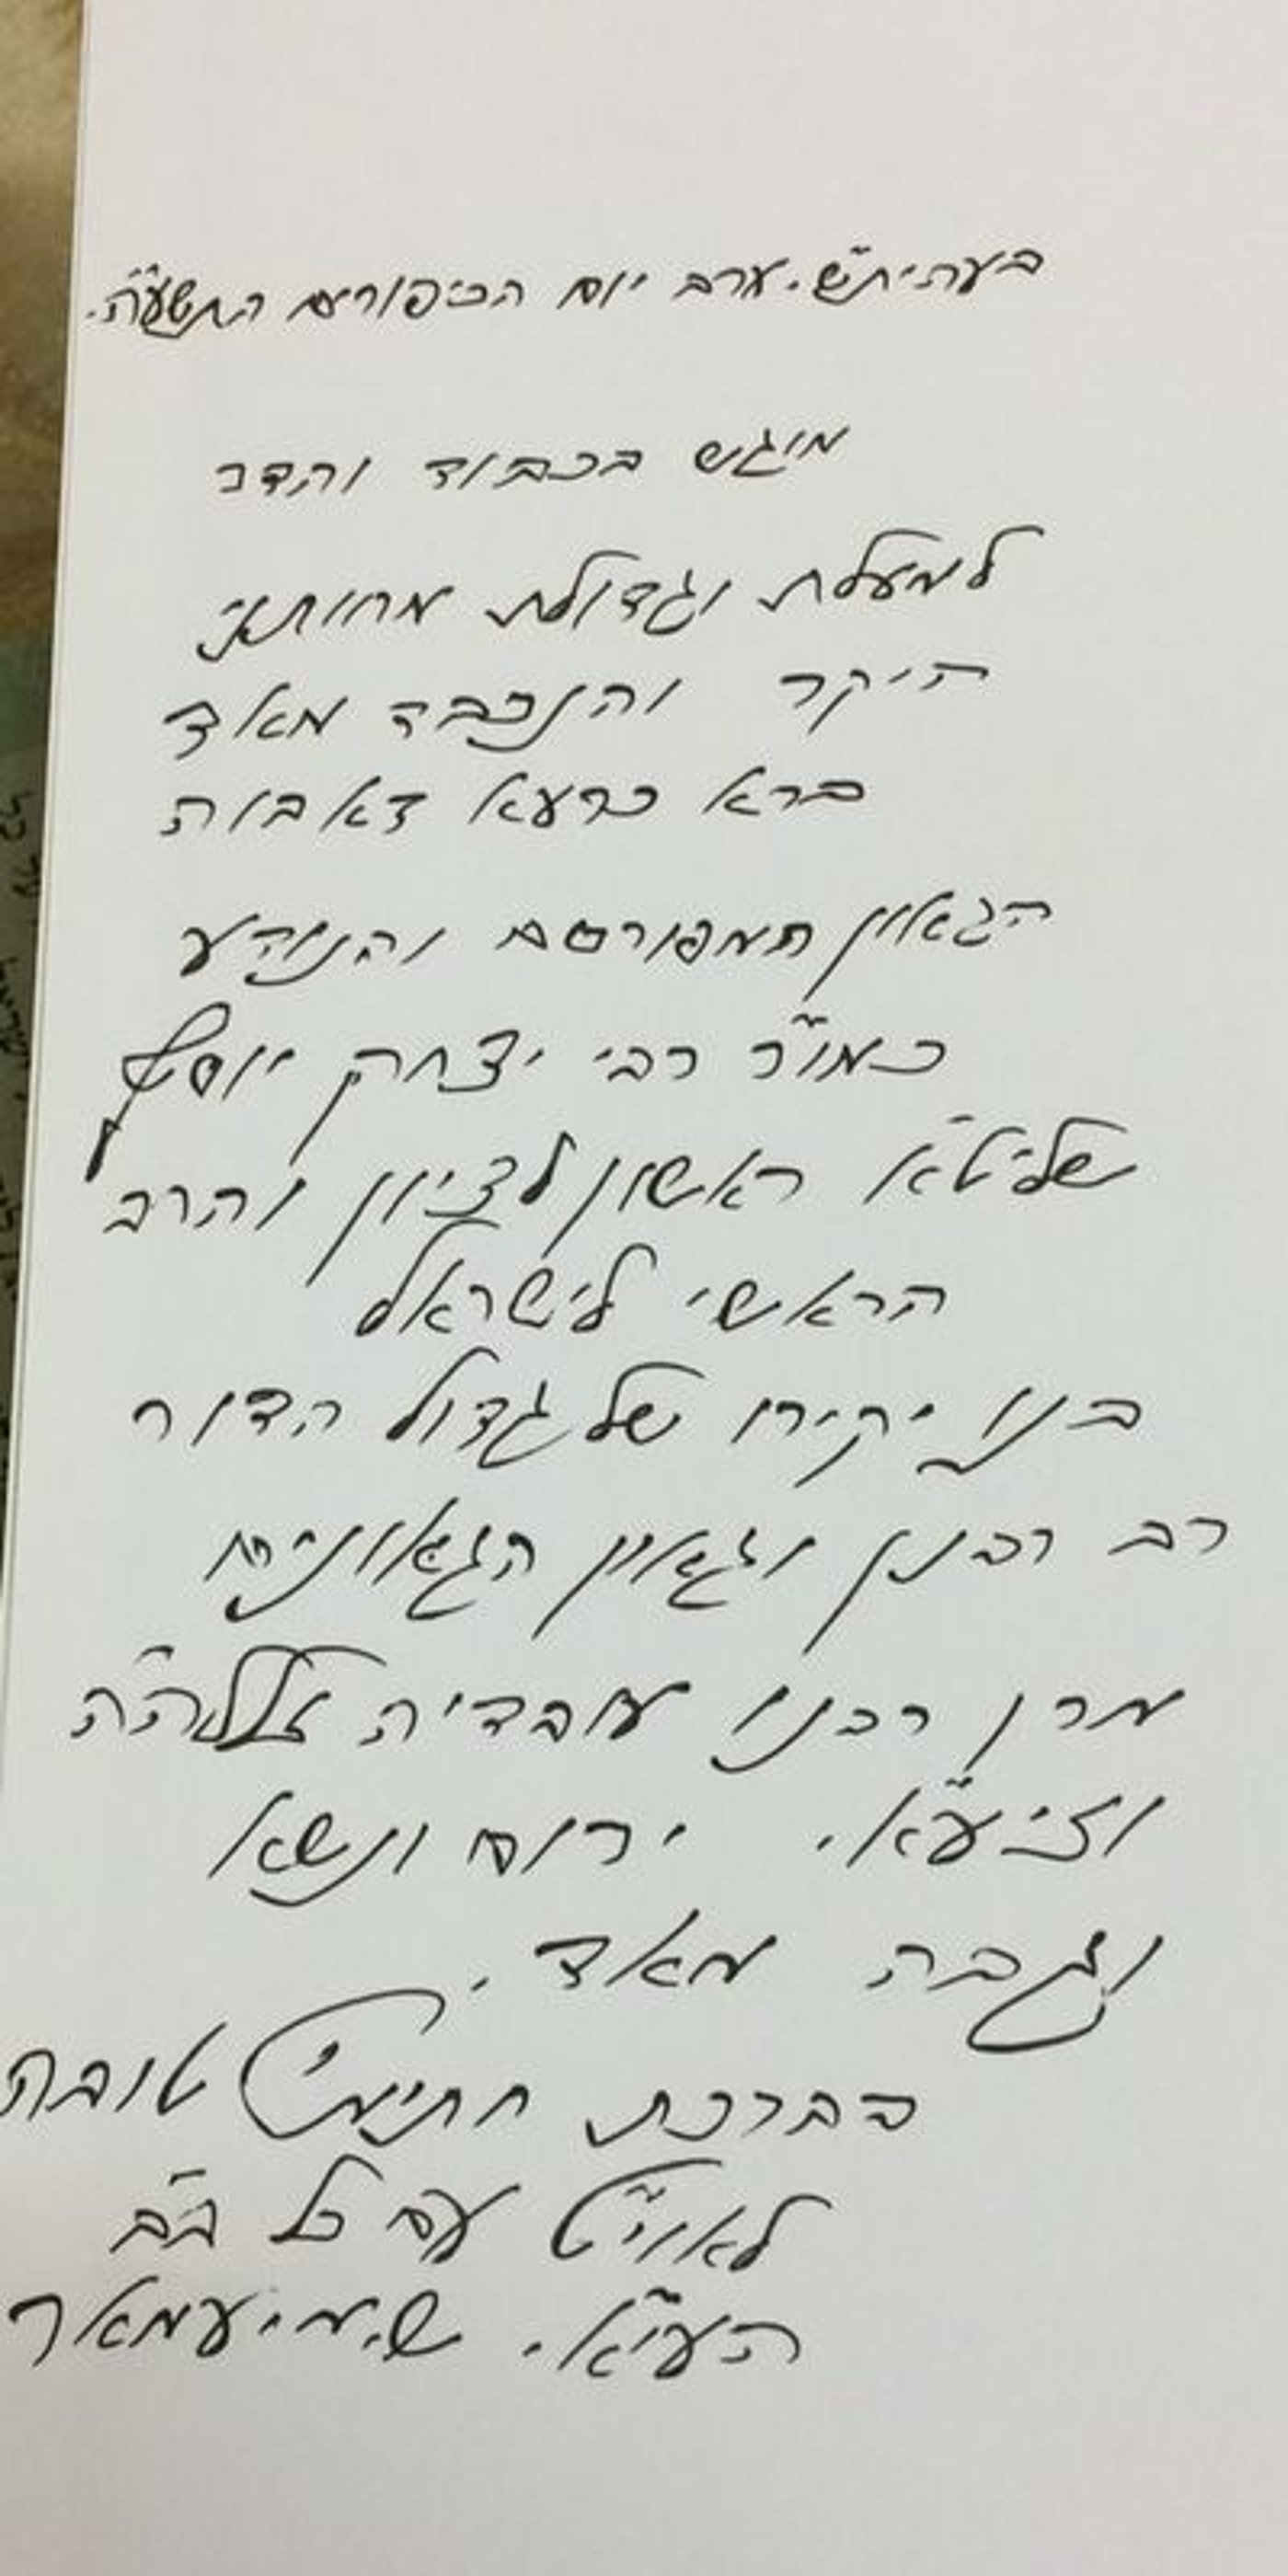 בעהית״ש. ערב יום הכיפורים התשע״ה.
מוגש בכבוד והדר
למעלת וגדולת מחותני
היקר והנכבד מאד
ברא כרעא דאבוה
הגאון המפורסם והנודע
כמו״ר רבי יצחק יוסף
שליט״א ראשון לציון והרב
הראשי לישראל
בנו יקירו של גדול הדור
רב רבנן וגאון הגאונים
מרן רבנו עובדיה זצללה״ה
וזיע״א. ירום ונשא
וגבה מאד.
בברכת חתימה טובה
לאוי״ט עם כל ב״ב
העי״א. ש.מ.יעמאר